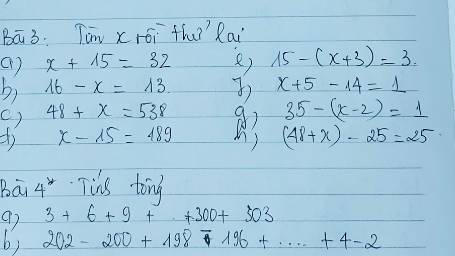 Bài 3: Tìm x rồi thử lại
a) x + 15 = 32 e) 15 - (x+3) = 3.
b) 16 - x = 13. f) x+5 - 14 = 1
c) 48 + x = 538 g) 35 - (x-2) = 1
d) x - 15 = 189 h) (48+x) - 25 = 25.
Bài 4* Tính tổng
a) 3 + 6 + 9 + . +300+ 303
b) 202 - 200 + 198 - 196 + .... + 4-2